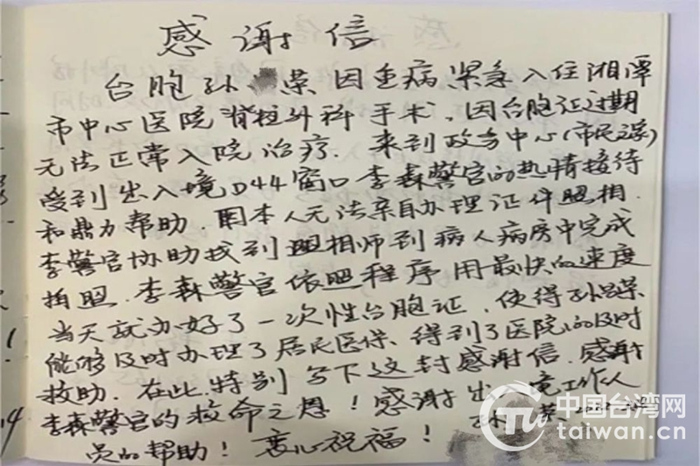 感谢信
台胞孙 荣因重病紧急入住湘潭
市中心医院脊柱外科手术,因台胞证过期
无法正常入院治疗.来到政务中心(市民之家)
受到出入境D44窗口李森警官的热情接待
和鼎力帮助.因本人无法亲自办理证件照相.
李警官协助找到照相师到病人病房中完成
拍照.李森警官依照程序用最快的速度
当天就办好了一次性台胞证.使得孙 荣
能够及时办理了居民医保.得到了医院的及时
救助.在此特别写下这封感谢信.感谢
李森警官的救命之恩!感谢出 境工作人
员的帮助!衷心祝福!
中国台湾网
taiwan.cn